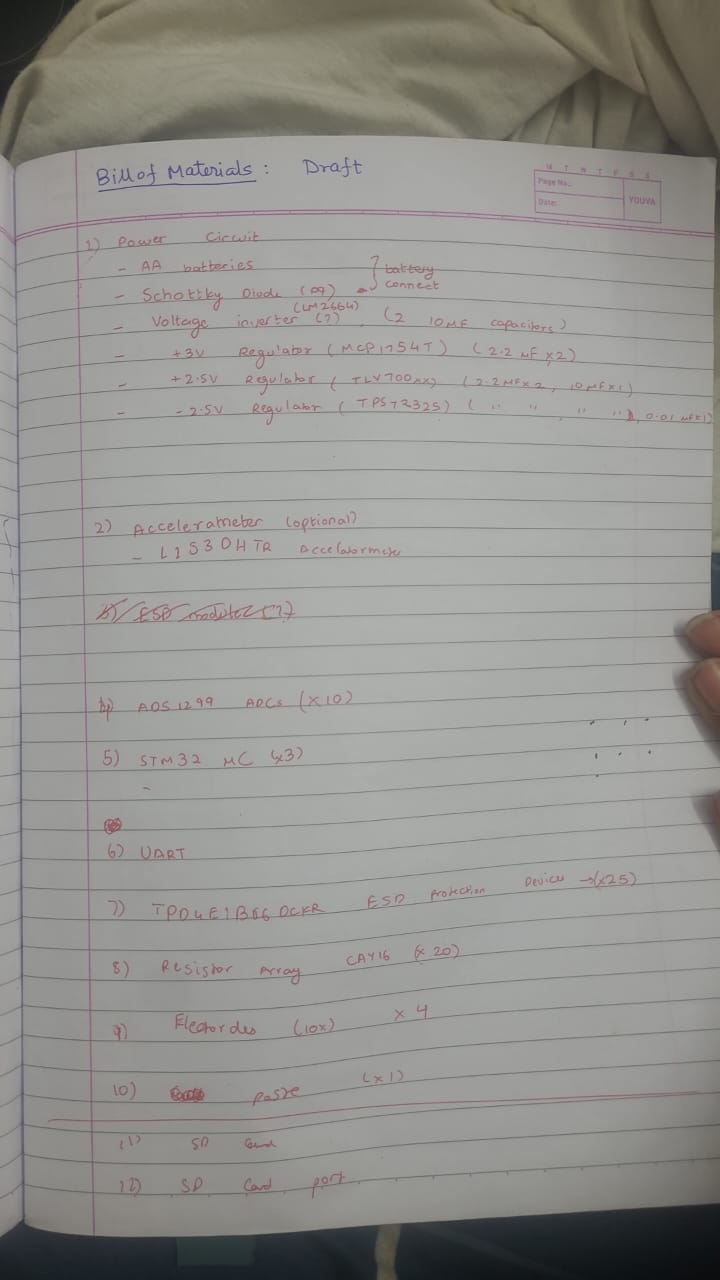 Bill of Materials : Draft
M T W T F S S
Page No.:
Date:
YOUVA
1) Power Circuit
- AA batteries
- Schottky Diode
battery
connect
(LM2664)
- Voltage inverter (?), (2 10µF capacitors)
- +3V Regulator (MCP1754T) (2.2 µF x2)
- +2.5V Regulator (TLV700xx) (2.2µF x 2, 10µF x1)
- -2.5V Regulator (TPS72325) ( " " , " " , 0.01 µF x1)
2) Accelerameter (optional)
- LIS3DHTR
3) ESP (?)
4) ADS1299 ADCs (x10)
5) STM32 µC (x3)
-
6) UART
7) TPD4E1B06DCKR ESD Protection Devices → (x25)
8) Resistor Array CAY16 (x 20)
9) Electordes (10x) x 4
10) paste (x1)
11) SD Card
12) SD Card port